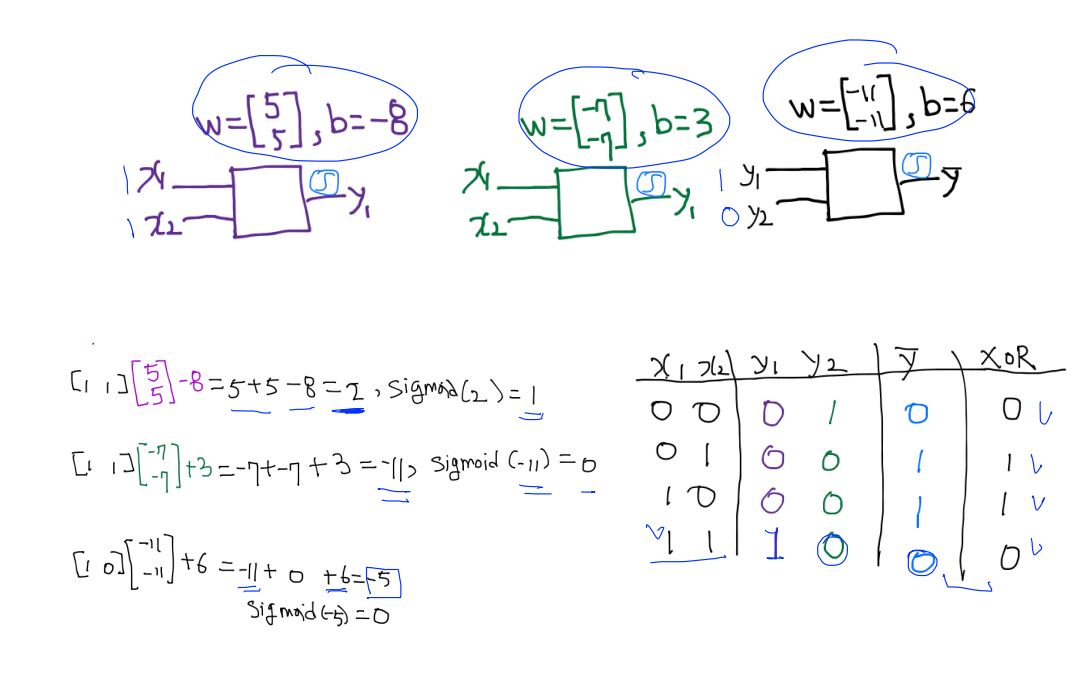 w=[5 5], b=-8
w=[-7 -7], b=3
w=[-11 -11], b=6
1 x1
1 x2
S y1
x1
x2
S y1
1 y1
0 y2
S y̅
[1 1][5 5]-8=5+5-8=2, Sigmoid(2)=1
[1 1][-7 -7]+3=-7+-7+3=-11, Sigmoid(-11)=0
[1 0][-11 -11]+6=-11+0+6=-5
Sigmoid(-5)=0
x1 x2 y1 y2 y̅ XOR
0 0 0 1 0 0
0 1 0 0 1 1
1 0 0 0 1 1
1 1 1 0 0 0